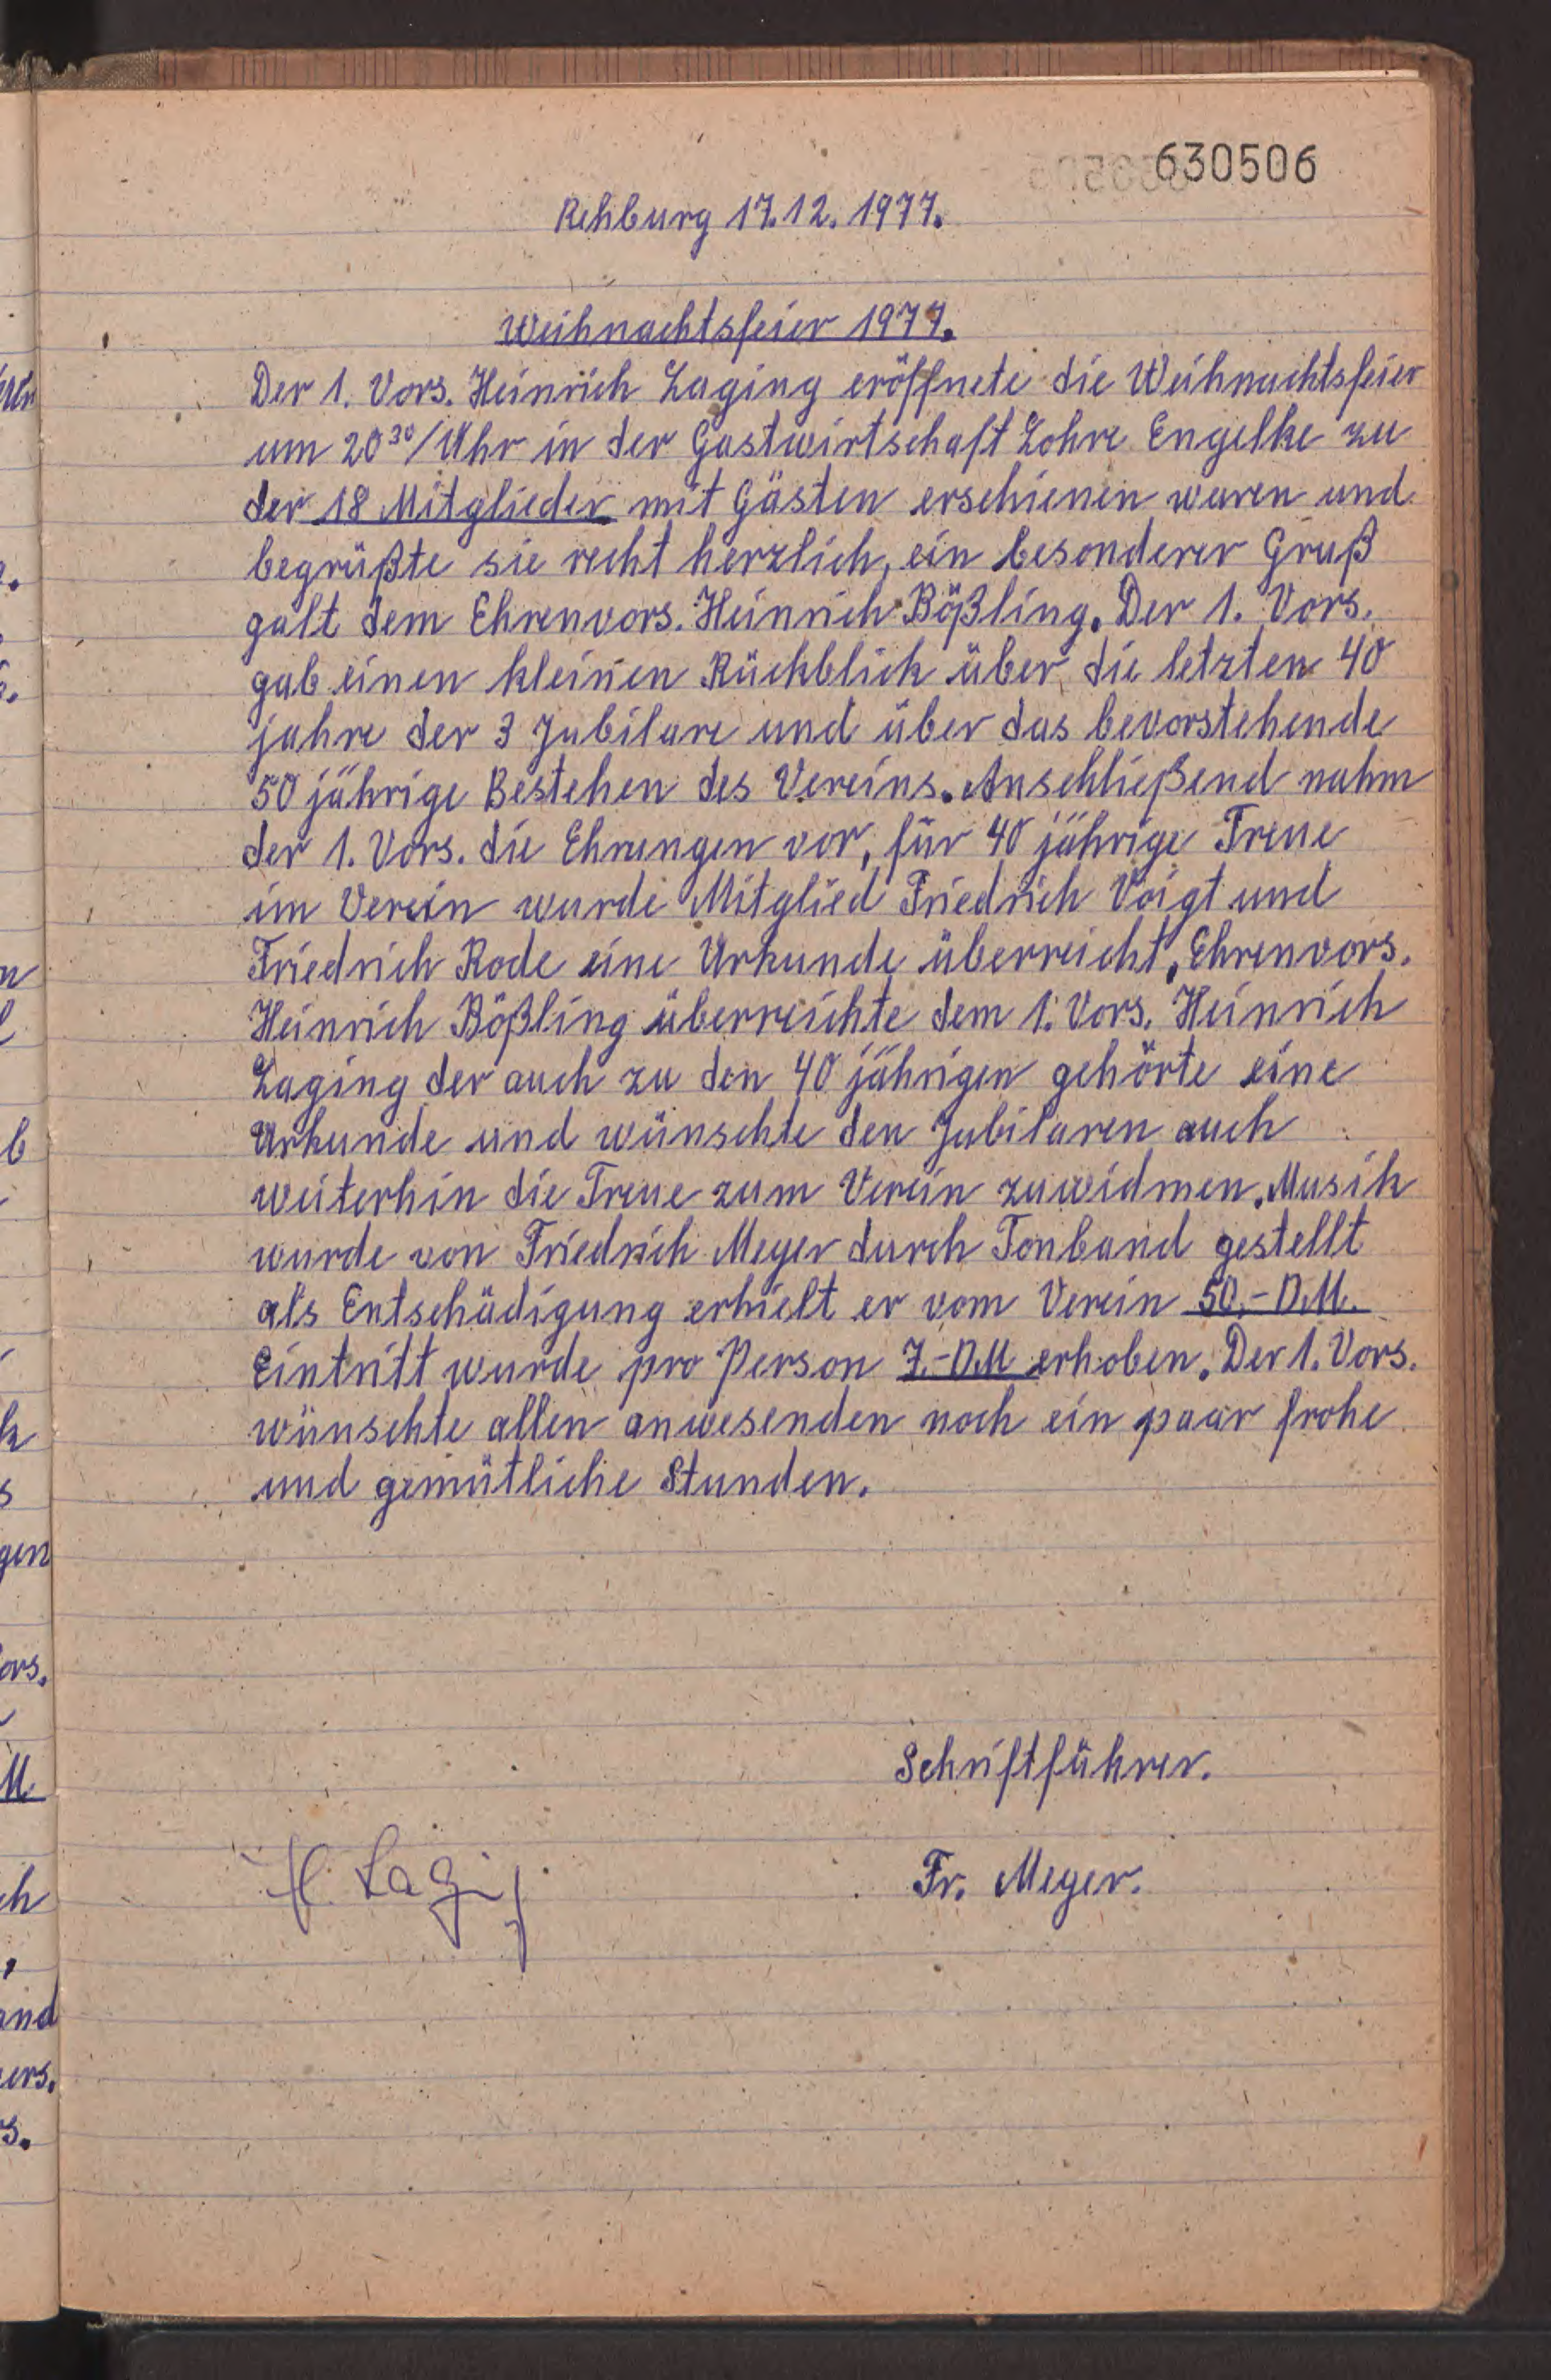 630506
Rehburg 17.12.1977.
Weihnachtsfeier 1977.
Der 1. Vors. Heinrich Laging eröffnete die Weihnachtsfeier
um 20³⁰/Uhr in der Gastwirtschaft Lohre Engelke zu
der 18 Mitglieder mit Gästen erschienen waren und
begrüßte sie recht herzlich, ein besonderer Gruß
galt dem Ehrenvors. Heinrich Bößling. Der 1. Vors.
gab einen kleinen Rückblick über die letzten 40
jahre der 3 Jubilare und über das bevorstehende
50 jährige Bestehen des Vereins. Anschließend nahm
der 1. Vors. die Ehrungen vor, für 40 jährige Treue
im Verein wurde Mitglied Friedrich Voigt und
Friedrich Rode eine Urkunde überreicht, Ehrenvors.
Heinrich Bößling überreichte dem 1. Vors. Heinrich
Laging der auch zu den 40 jährigen gehörte eine
Urkunde und wünschte den Jubilaren auch
weiterhin die Treue zum Verein zuwidmen. Musik
wurde von Friedrich Meyer durch Tonband gestellt
als Entschädigung erhielt er vom Verein 50,- D.M.
Eintritt wurde pro Person 7.-D.M erhoben. Der 1. Vors.
wünschte allen anwesenden noch ein paar frohe
und gemütliche Stunden.
Schriftführer.
H. Laging
Fr. Meyer.